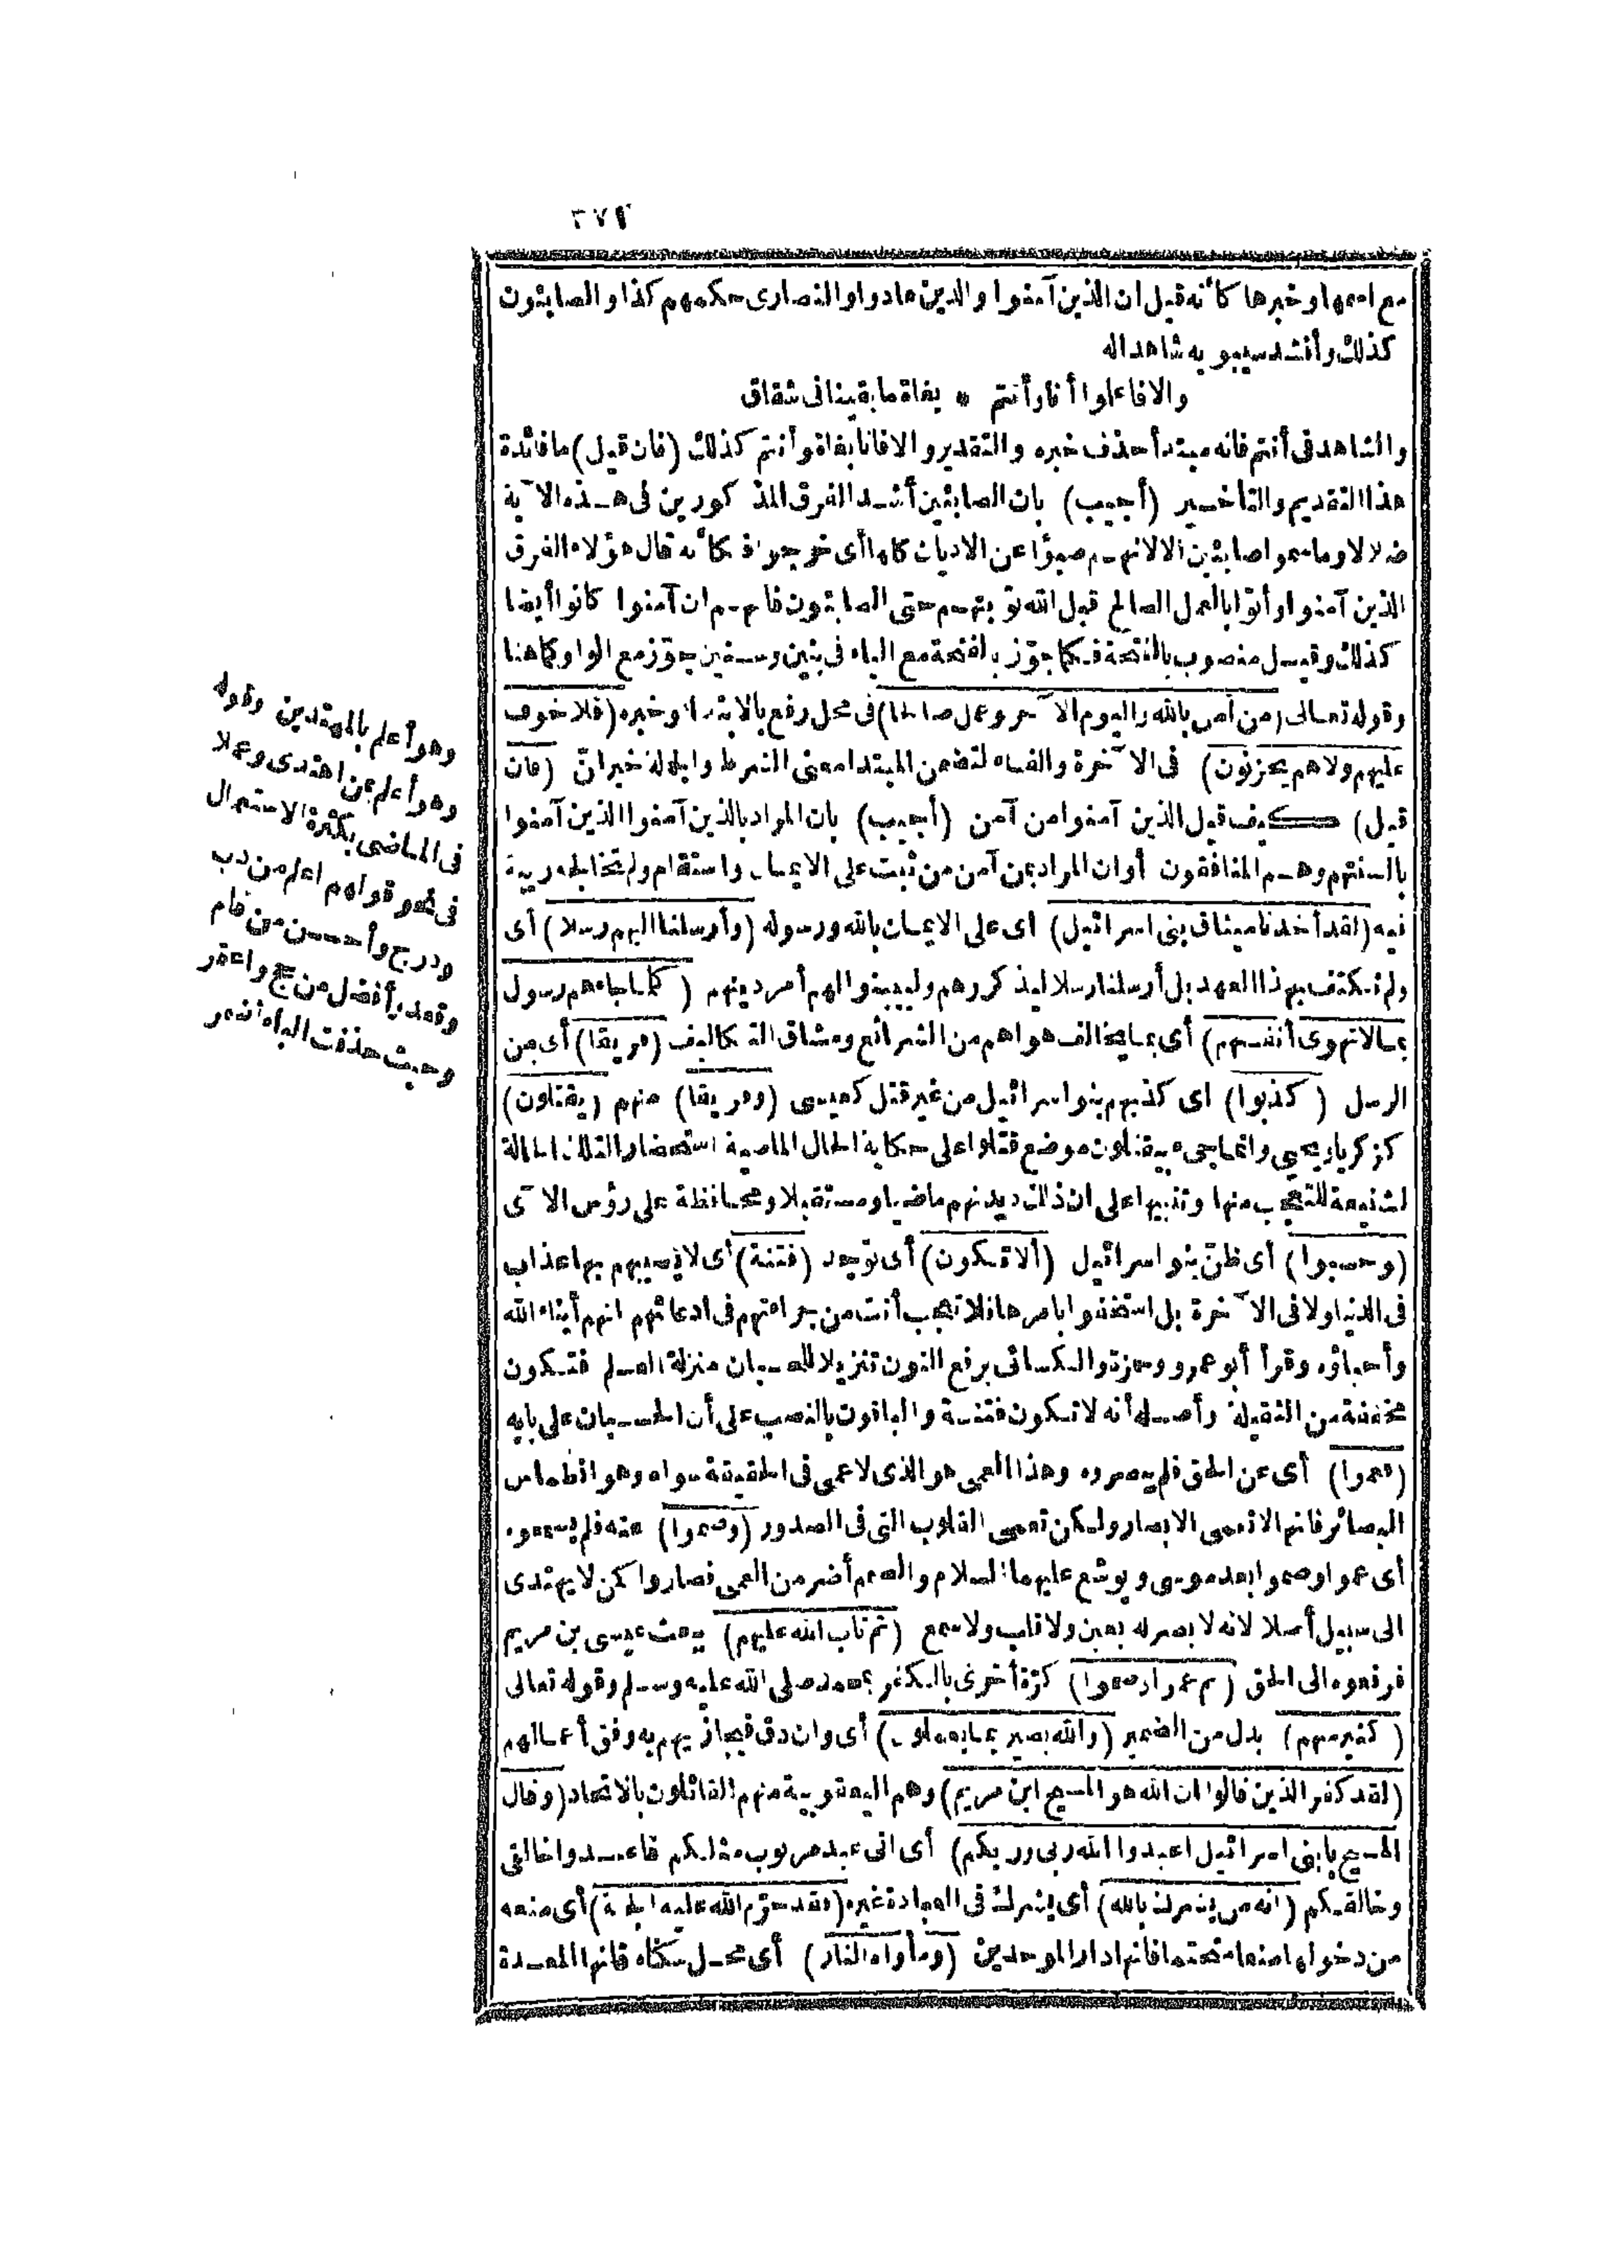 ٣٧٦
مع اسمها وخبرها كأنه قيل ان الذين آمنوا والذين هادوا والنصارى حكمهم كذا والصابئون
كذلك وأنشد سيبويه شاهدا له
والا فاعلوا أنا وأنتم * بغاة ما بقينا فى شقاق
والشاهد فى أنتم فانه مبتدأ حذف خبره والتقدير والا فانا بغاة وأنتم كذلك (فان قيل) ما فائدة
هذا التقديم والتأخير (أجيب) بان الصابئين أشد الفرق المذكورين فى هذه الآية
ضلالا وما سموا صابئين الا لانهم صبؤا عن الاديان كلها أى خرجوا فكأنه قال هؤلاء الفرق
الذين آمنوا وأتوا بالعمل الصالح قبل الله توبتهم حتى الصابئون فانهم ان آمنوا كانوا أيضا
كذلك وقيل منصوب بالفتحة فكما جوّز بالفتحة مع الياء فى بنين وسنين جوّز مع الواو كما هنا
وقوله تعالى (من آمن بالله واليوم الآخر وعمل صالحا) فى محل رفع بالابتداء وخبره (فلا خوف
عليهم ولا هم يحزنون) فى الآخرة والفاء لتضمن المبتدا معنى الشرط والجملة خبر انّ (فان
قيل) كيف قيل الذين آمنوا من آمن (أجيب) بان المراد بالذين آمنوا الذين آمنوا
بالسنتهم وهم المنافقون أو ان المراد بمن آمن من ثبت على الايمان واستقام ولم تخالطه ريبة
فيه (لقد أخذنا ميثاق بنى اسرائيل) اى على الايمان بالله ورسوله (وأرسلنا اليهم رسلا) أى
ولم نكتف بهذا العهد بل أرسلنا رسلا ليذكروهم وليبينوا لهم أمر دينهم (كلما جاءهم رسول
بما لا تهوى أنفسهم) أى بما يخالف هواهم من الشرائع ومشاق التكاليف (فريقا) أى من
الرسل (كذبوا) اى كذبهم بنو اسرائيل من غير قتل كعيسى (وفريقا) منهم (يقتلون)
كزكريا ويحيى وانما جىء بيقتلون موضع قتلوا على حكاية الحال الماضية استحضارا لتلك الحالة
لشنيعة للتعجب منها وتنبيها على ان ذلك ديدنهم ماضيا ومستقبلا ومحافظة على رؤس الآى
(وحسبوا) أى ظنّ بنو اسرائيل (ألا تكون) أى توجد (فتنة) أى لا يصيبهم بها عذاب
فى الدنيا ولا فى الآخرة بل استخفوا بامرها فلا تعجب أنت من جراءتهم فى ادعائهم انهم أبناء الله
وأحباؤه وقرأ أبو عمرو وحمزة والكسائى برفع النون تنزيلا للحسبان منزلة العلم فتكون
مخففة من الثقيلة وأصله أنه لا تكون فتنة والباقون بالنصب على أن الحسبان على بابه
(فعموا) أى عن الحق فلم يبصروه وهذا العمى هو الذى لا عمى فى الحقيقة سواه وهو انطماس
البصائر فانها لا تعمى الابصار ولكن تعمى القلوب التى فى الصدور (وصموا) عنه فلم يسمعوه
أى عموا وصموا بعد موسى ويوشع عليهما السلام والصمم أضر من العمى فصاروا كمن لا يهتدى
الى سبيل أصلا لانه لا بصر له بعين ولا قلب ولا سمع (ثم تاب الله عليهم) ببعث عيسى بن مريم
فرفعوه الى الحق (ثم عموا وصموا) كرّة أخرى بالكفر بمحمد صلى الله عليه وسلم وقوله تعالى
(كثير منهم) بدل من الضمير (والله بصير بما يعملون) أى وان دق فيجازيهم به وفق أعمالهم
(لقد كفر الذين قالوا ان الله هو المسيح ابن مريم) وهم اليعقوبية منهم القائلون بالاتحاد (وقال
المسيح يا بنى اسرائيل اعبدوا الله ربى وربكم) أى انى عبد مربوب مثلكم فاعبدوا خالقى
وخالقكم (انه من يشرك بالله) أى يشرك فى العبادة غيره (فقد حرّم الله عليه الجنة) أى منعه
من دخولها منعا متحتما فانها دار الموحدين (ومأواه النار) أى محل سكناه فانها المعدة
وهو أعلم بالمهتدين وقوله
وهو أعلم بمن اهتدى وعملا
فى الماضى بكثرة الاستعمال
فى نحو قولهم اعلم من دب
ودرج وأحسن من قام
وقعد وأفضل من حج واعتمر
وحيث حذفت الباء